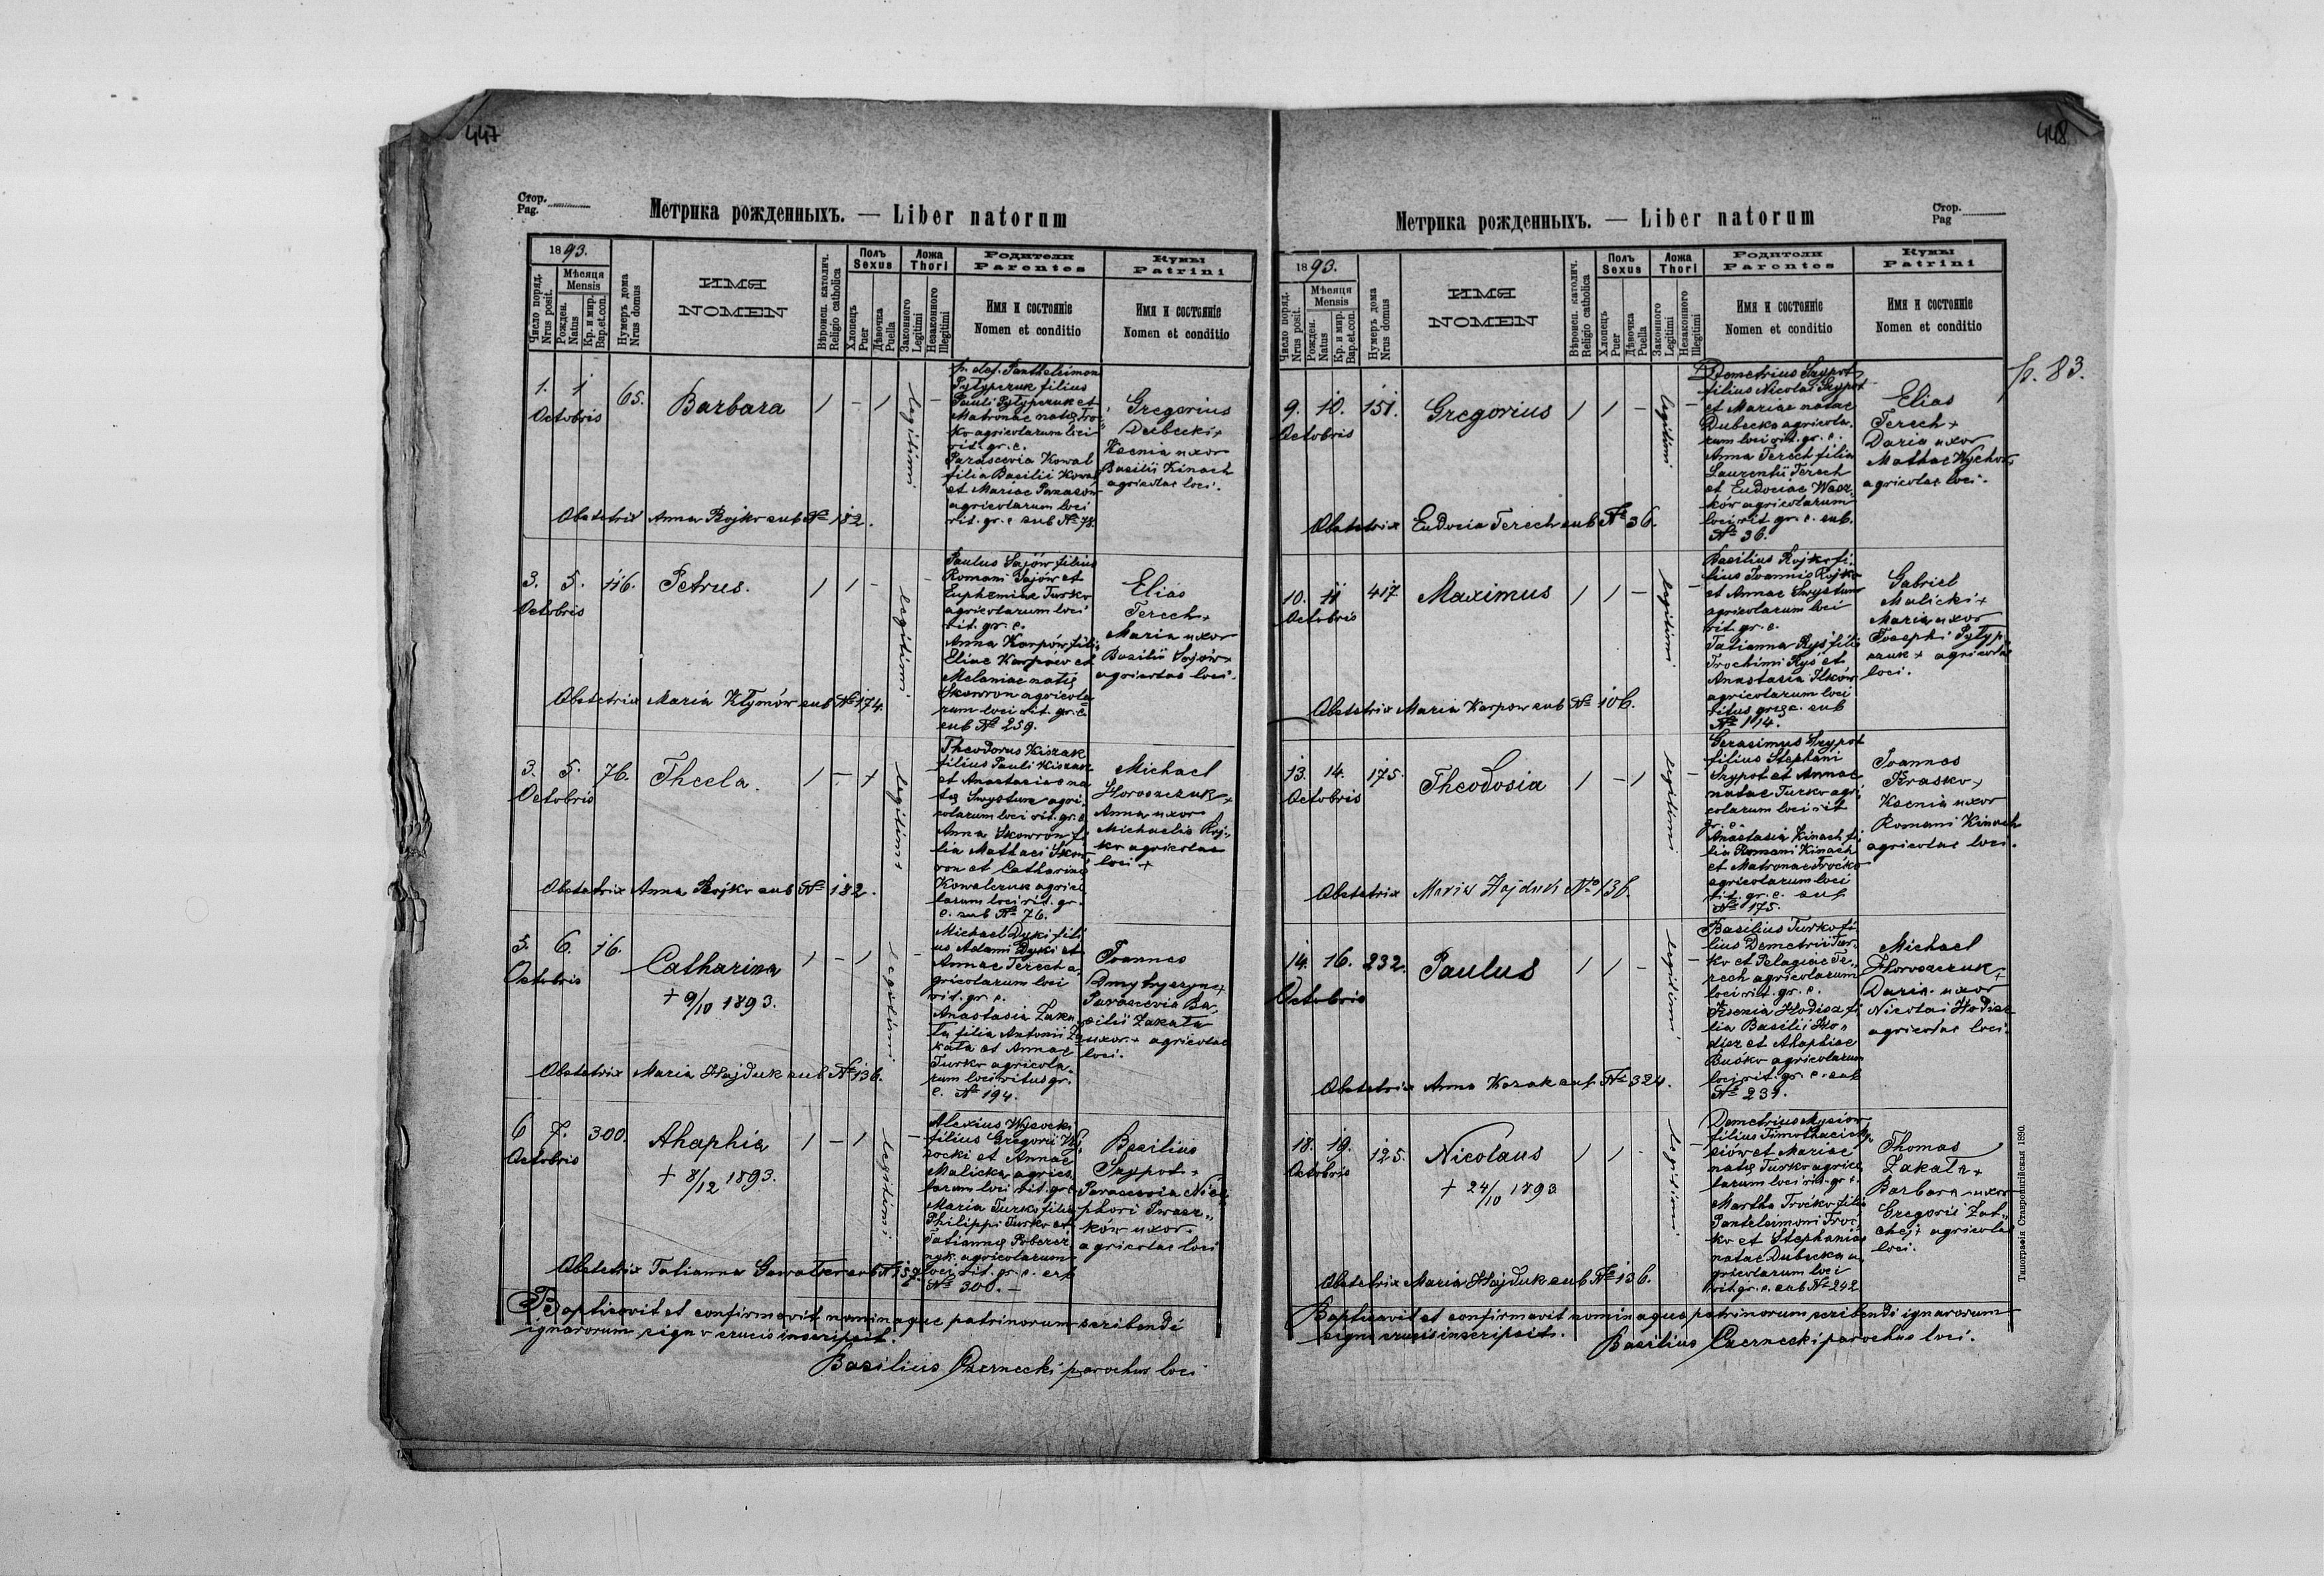 447
Стор.
Pag.
Метрика рожденныхъ. — Liber natorum
1893.
Число поряд.
Nrus posit.
Мѣсяця
Mensis
Рожден.
Natus
Кр. и мир.
Bap.et.con.
Нумеръ дома
Nrus domus
ИМЯ
NOMEN
Вѣроисп. католич.
Religio catholica
Полъ
Sexus
Хлопецъ
Puer
Дѣвочка
Puella
Ложа
Thori
Законного
Legitimi
Незаконного
Illegitimi
Родители
Parentes
Имя и состояніе
Nomen et conditio
Кумы
Patrini
Имя и состояніе
Nomen et conditio
1. 1 65. Barbara 1 - 1 legitimi -
Octobris
Pauli Pytypczuk et
ko agricolarum loci
rit. gr. c.
Parascevia Kowal
filia Basilii Kowal
et Mariae Panasów
agricolarum loci
rit. gr. c sub № 78
Gregorius
Dubecki +
Ksenia uxor
Basilii Kinach
agricolae loci.
Obstetrix Anna Rojko sub № 182.
3. 5. 116. Petrus. 1 1 - legitimi -
Octobris
Paulus Sajów filius
Romani Sajów et
Euphemiae Turko
agricolarum loci
rit. gr. c.
Anna Karpów fili
Eliae Karpów et
Melaniae natę
Skowron agricola
rum loci rit. gr. c
sub № 259.
Elias
Terech +
Maria uxor
Basilii Sajów +
agricolae loci.
Obstetrix Maria Kłymów sub № 174.
3. 5. 76. Thecla. 1 - + legitimi
Octobris
Theodorus Kiszak
filius Pauli Kiszak
et Anastasiae na
tę Swystun agri
colarum loci rit. gr. c
Anna Skowron fi
lia Mathaei Skow
ron et Catharinę
Kowalczuk agrico
larum loci rit. gr.
c. sub № 76.
Michael
Horoszczuk +
Anna uxor
Michaelis Roj
ko agricolae
loci +
Obstetrix Anna Rojko sub № 182.
5. 6. 16. Catharina 1 - 1 legitimi -
Octobris
+ 9/10 1893.
Michael Dyki fili
us Adami Dyki et
Annae Terech a
gricolarum loci
rit. gr. c.
Anastasia Zaka
ła filia Antonii Za
kała et Annae
Turko agricola
rum loci ritus gr.
c. № 194.
Joannes
Dmytryszyn +
Parascevia Ba
silii Zakała
uxor + agricolae
loci.
Obstetrix Maria Hajduk sub № 136.
6 7. 300. Ahaphia 1 - 1 legitimi -
Octobris
+ 8/12 1893.
Alexius Wysocki
filius Gregorii Wy
socki et Annae
Malicka agrico
larum loci rit. gr. c
Maria Turko filia
Philippi Turko et
agricolarum
loci rit. gr. c. sub
№ 300. -
Basilius
Szypot +
Parascevia Nice
phori Iwasz
ków uxor
agricolae loci
Obstetrix Tatianna sub № 157.
Baptisavit et confirmavit nominaque patrinorum scribendi
ignarorum signo crucis inscripsit.
Basilius Czernecki parochus loci
448
Стор.
Pag
Метрика рожденныхъ. — Liber natorum
p. 83.
1893.
Число поряд.
Nrus posit.
Мѣсяця
Mensis
Рожден.
Natus
Кр. и мир.
Bap.et.con.
Нумеръ дома
Nrus domus
ИМЯ
NOMEN
Вѣроисп. католич.
Religio catholica
Полъ
Sexus
Хлопецъ
Puer
Дѣвочка
Puella
Ложа
Thori
Законного
Legitimi
Незаконного
Illegitimi
Родители
Parentes
Имя и состояніе
Nomen et conditio
Кумы
Patrini
Имя и состояніе
Nomen et conditio
9. 10. 151. Gregorius 1 1 - legitimi -
Octobris
Demetrius Szypot
filius Nicolai Szypot
et Mariae natae
Dubecka agricola
rum loci rit. gr. c.
Anna Terech filia
Laurentii Terech
et Eudociae Wasz
ków agricolarum
loci rit. gr. c. sub.
№ 36.
Elias
Terech +
Daria uxor
agricolae loci.
Obstetrix Eudocia Terech sub № 36.
10. 11 417 Maximus 1 1 - legitimi -
Octobris
Basilius Rojko fi
lius Joannis Rojko
et Annae Swystun
agricolarum loci
rit. gr. c.
Tatianna Ryś filia
Trochimi Ryś et
Anastasia Ilków
agricolarum loci
ritus gręc. sub
№ 114.
Gabriel
Malicki +
Maria uxor
Josephi Pyłyp
czuk + agricolae
loci.
Obstetrix Maria Karpow sub № 106.
13. 14. 175. Theodosia 1 - 1 legitimi -
Octobris
Gerasimus Szypot
filius Stephani
Szypot et Annae
natae Turko agri
colarum loci rit
gr. c.
Anastasia Kinach fi
lia Romani Kinach
et Matronae Troćko
agricolarum loci
rit. gr. c. sub
№ 175.
Joannes
Kraśko +
Ksenia uxor
Romani Kinach
agricolae loci.
Obstetrix Maria Hajduk № 136.
14. 16. 232. Paulus 1 1 - legitimi
Octobris
Basilius Turko fi
lius Demetrii Tur
ko et Pelagiae Te
rech agricolarum
loci rit. gr. c.
Ksenia Hodisz fi
lia Basilii Ho
disz et Ahaphiae
Buśko agricolarum
loci rit. gr. c. sub
№ 231.
Michael
Horoszczuk +
Daria uxor
Nicolai Hodisz
agricolae loci.
Obstetrix Anna Kozak sub № 324.
18. 19. 125. Nicolaus 1 1 - legitimi -
Octobris
+ 24/10 1893
Demetrius Mysiów
filius Timothaei My
siów et Mariae
natę Turko agrico
larum loci rit. gr c.
Martha Troćko filia
Panteleimoni Troć
ko et Stephaniae
natae Dubecka a
gricolarum loci
rit. gr. c. sub № 242
Thomas
Zakała +
Barbara uxor
Gregorii Zat
chej agricolae
loci.
Obstetrix Maria Hajduk sub № 136.
Baptisavit et confirmavit nominaque patrinorum scribendi ignarorum
signo crucis inscripsit.
Basilius Czernecki parochus loci.
Типографія Ставропигійская 1890.